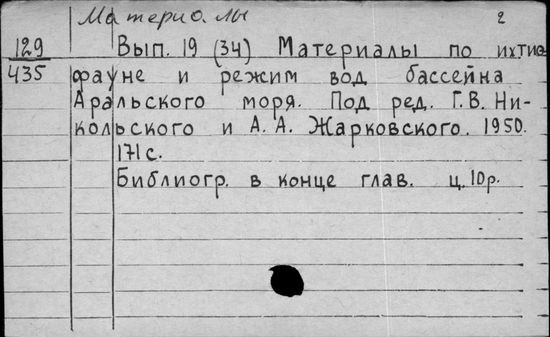 Материалы 2
129 Вып. 19 (34) Материалы по ихтио-
435 фауне и режим вод бассейна
Аральского моря. Под ред. Г. В. Ни-
кольского и А. А. Жарковского. 1950.
171 с.
Библиогр. в конце глав. ц. 10 р.